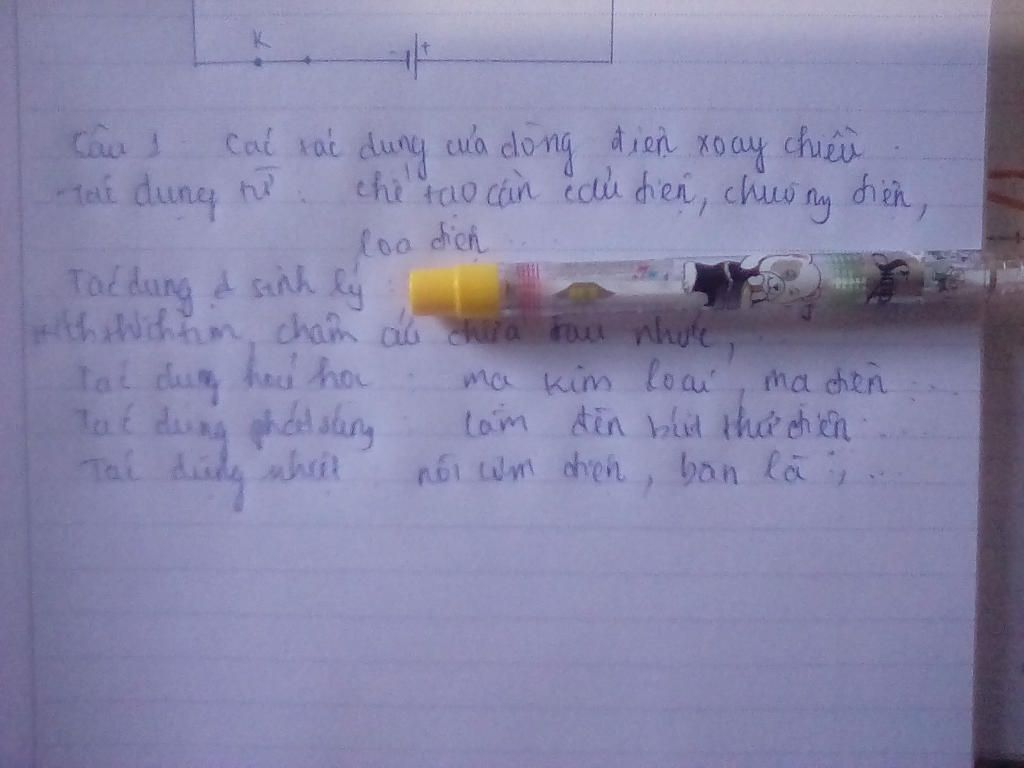 K
- +
Câu 1. Các tác dụng của dòng điện xoay chiều.
- Tác dụng từ: chế tạo cần cẩu điện, chuông điện,
loa điện
Tác dụng sinh lý:
kích thích tim, châm cứu chữa đau nhức,
Tác dụng hoá học: mạ kim loại, mạ điện...
Tác dụng phát sáng: làm đèn bút thử điện...
Tác dụng nhiệt nồi cơm điện, bàn là,...